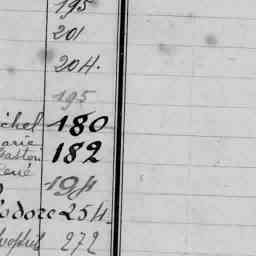 195
201
204.
195
ichel 180
arie
Gaston 182
René
194
odore 254.
272